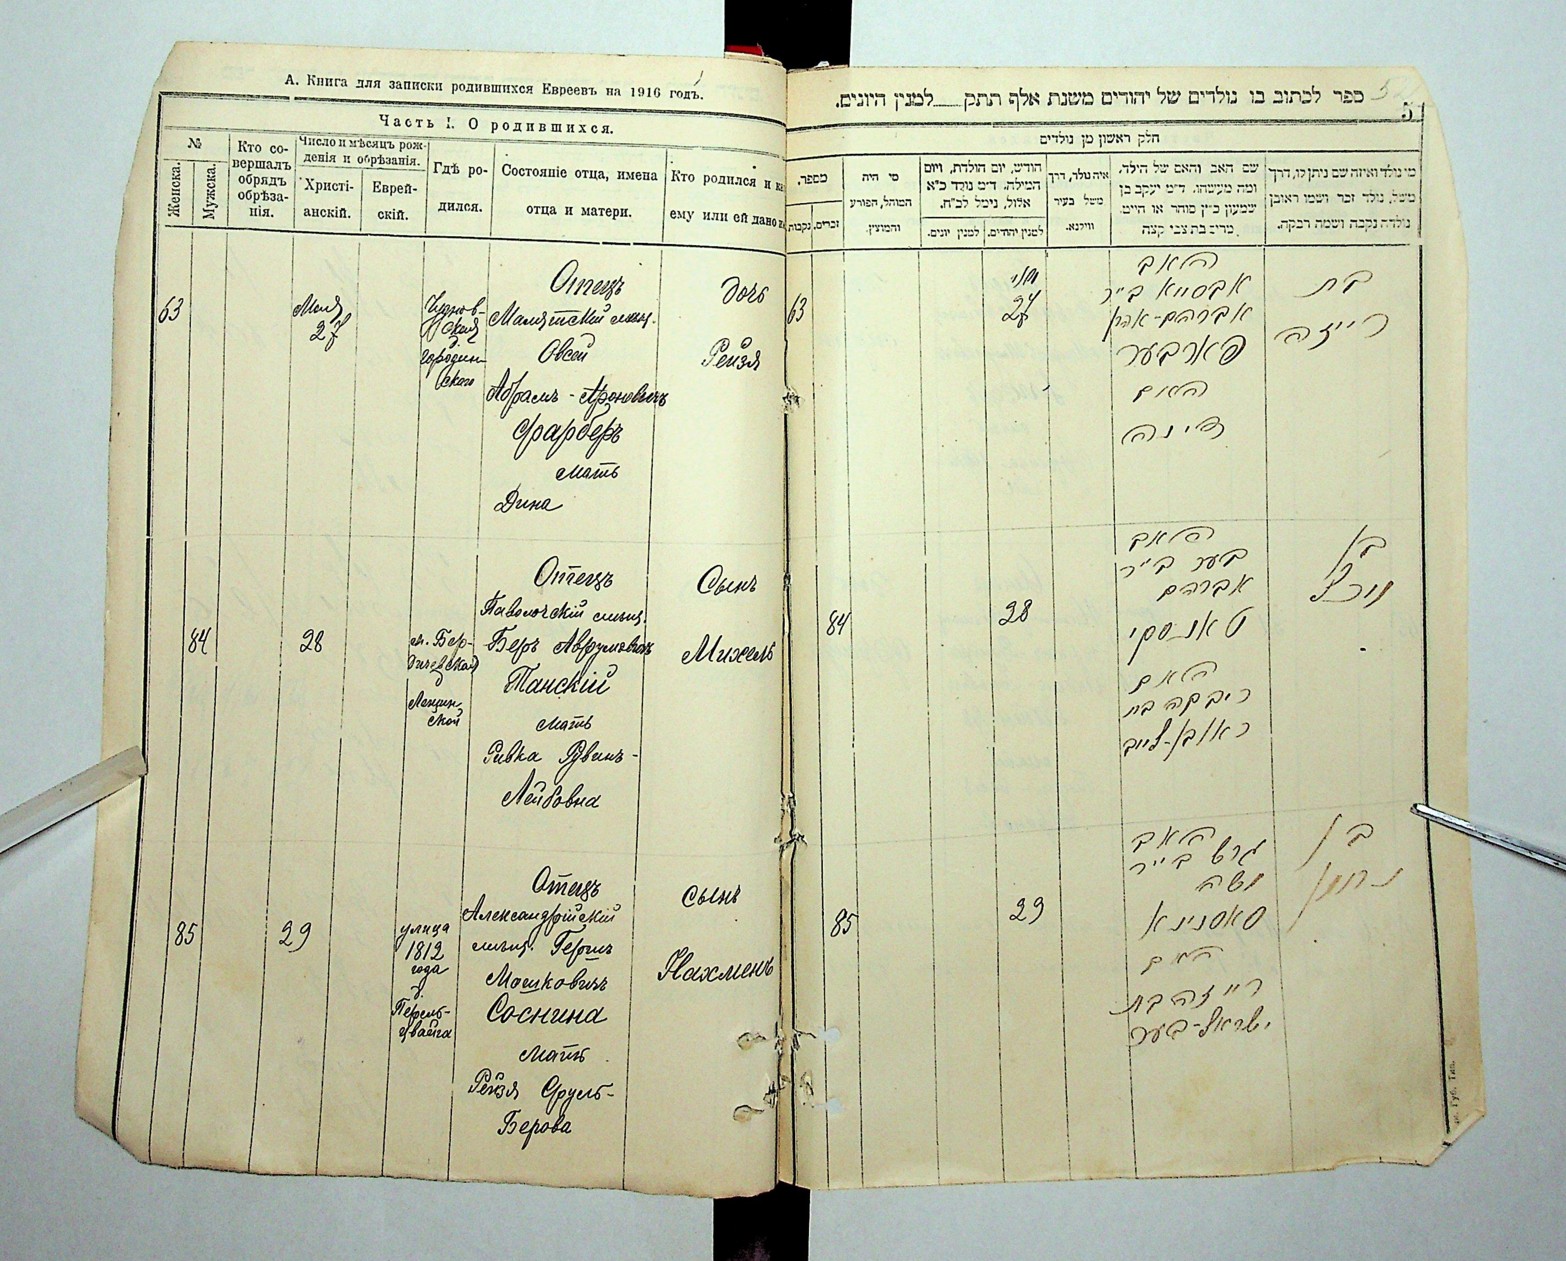 А. Книга для записки родившихся Евреевъ на 1916 годъ.
Часть I. О родившихся.
№
Женска.
Мужска.
Кто со-
вершалъ
обрядъ
обрѣза-
нія.
Число и мѣсяцъ рож-
денія и обрѣзанія.
Христі-
анскій.
Еврей-
скій.
Гдѣ ро-
дился.
Состояніе отца, имена
отца и матери.
Кто родился и
ему или ей дано
63
Мая
27
городин-
ского
Отецъ
Овсей
Абрамъ-Ароновичъ
Фарберъ
мать
Дина
дочь
Рейзя
84
28
м. Бер-
дичевская
Отецъ
Паволочскій мѣщ.
Беръ Аврумовичъ
Танскій
мать
Ривка Рувинъ-
Лейбовна
Сынъ
Михель
85
29
улица
1812
года
д.
Отецъ
Александрійскій
мѣщ. Гершъ
Мошковичъ
Соснина
мать
Рейзя Сруль-
Берова
сынъ
Нахменъ
ספר לכתוב בו נולדים של יהודים משנת אלף תתק למנין היונים.
5
חלק ראשון מן נולדים
מי נולד ואיזה שם ניתן לו, דרך
משל, נולד זכר ושמו ראובן
נולדה נקבה ושמה רבקה.
שם האב והאם של הילד,
ומה מעשהו. ד״מ יעקב בן
שמעון כ״ץ סוחר או חייט.
מרים בת צבי קצב
איה נולד, דרך
משל בעיר
ווילנא.
חודש, יום הולדת, ויום
המילה. ד״מ נולד כ״א
אלול, נימל לכ״ח.
למנין יהודים.
למנין יונים.
מי היה
המוהל, הפורע
והמוצץ.
מספר.
זכרים.
נקבות
63
מאי
27
האב
אברהם-אהרן
פארבער
האם
דינה
בת
רייזה
84
28
האב
בער ב״ר
אברהם
טאנסקי
האם
ריבקה בת
ראובן-לייב
בן
85
29
האב
הירש ב״ר
משה
סאסנינא
האם
רייזה בת
ישראל-בער
בן
נחמן